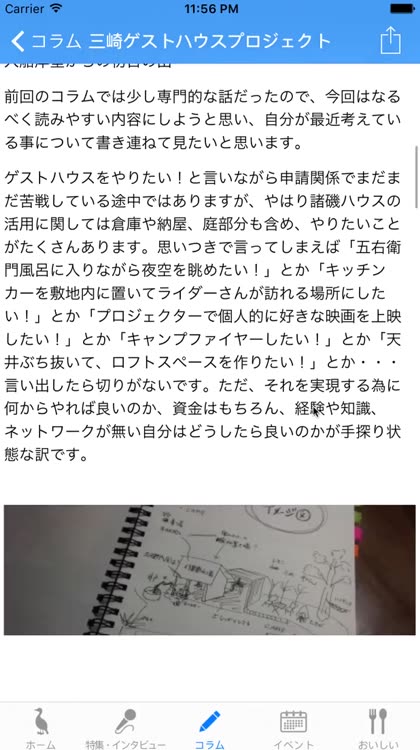 Carrier 11:56 PM
コラム 三崎ゲストハウスプロジェクト
前回のコラムでは少し専門的な話だったので、今回はなる
べく読みやすい内容にしようと思い、自分が最近考えてい
る事について書き連ねて見たいと思います。
ゲストハウスをやりたい！と言いながら申請関係でまだま
だ苦戦している途中ではありますが、やはり諸磯ハウスの
活用に関しては倉庫や納屋、庭部分も含め、やりたいこと
がたくさんあります。思いつきで言ってしまえば「五右衛
門風呂に入りながら夜空を眺めたい！」とか「キッチン
カーを敷地内に置いてライダーさんが訪れる場所にした
い！」とか「プロジェクターで個人的に好きな映画を上映
したい！」とか「キャンプファイヤーしたい！」とか「天
井ぶち抜いて、ロフトスペースを作りたい！」とか・・・
言い出したら切りがないです。ただ、それを実現する為に
何からやれば良いのか、資金はもちろん、経験や知識、
ネットワークが無い自分はどうしたら良いのかが手探り状
態な訳です。
イメージ②
ホーム 特集・インタビュー コラム イベント おいしい